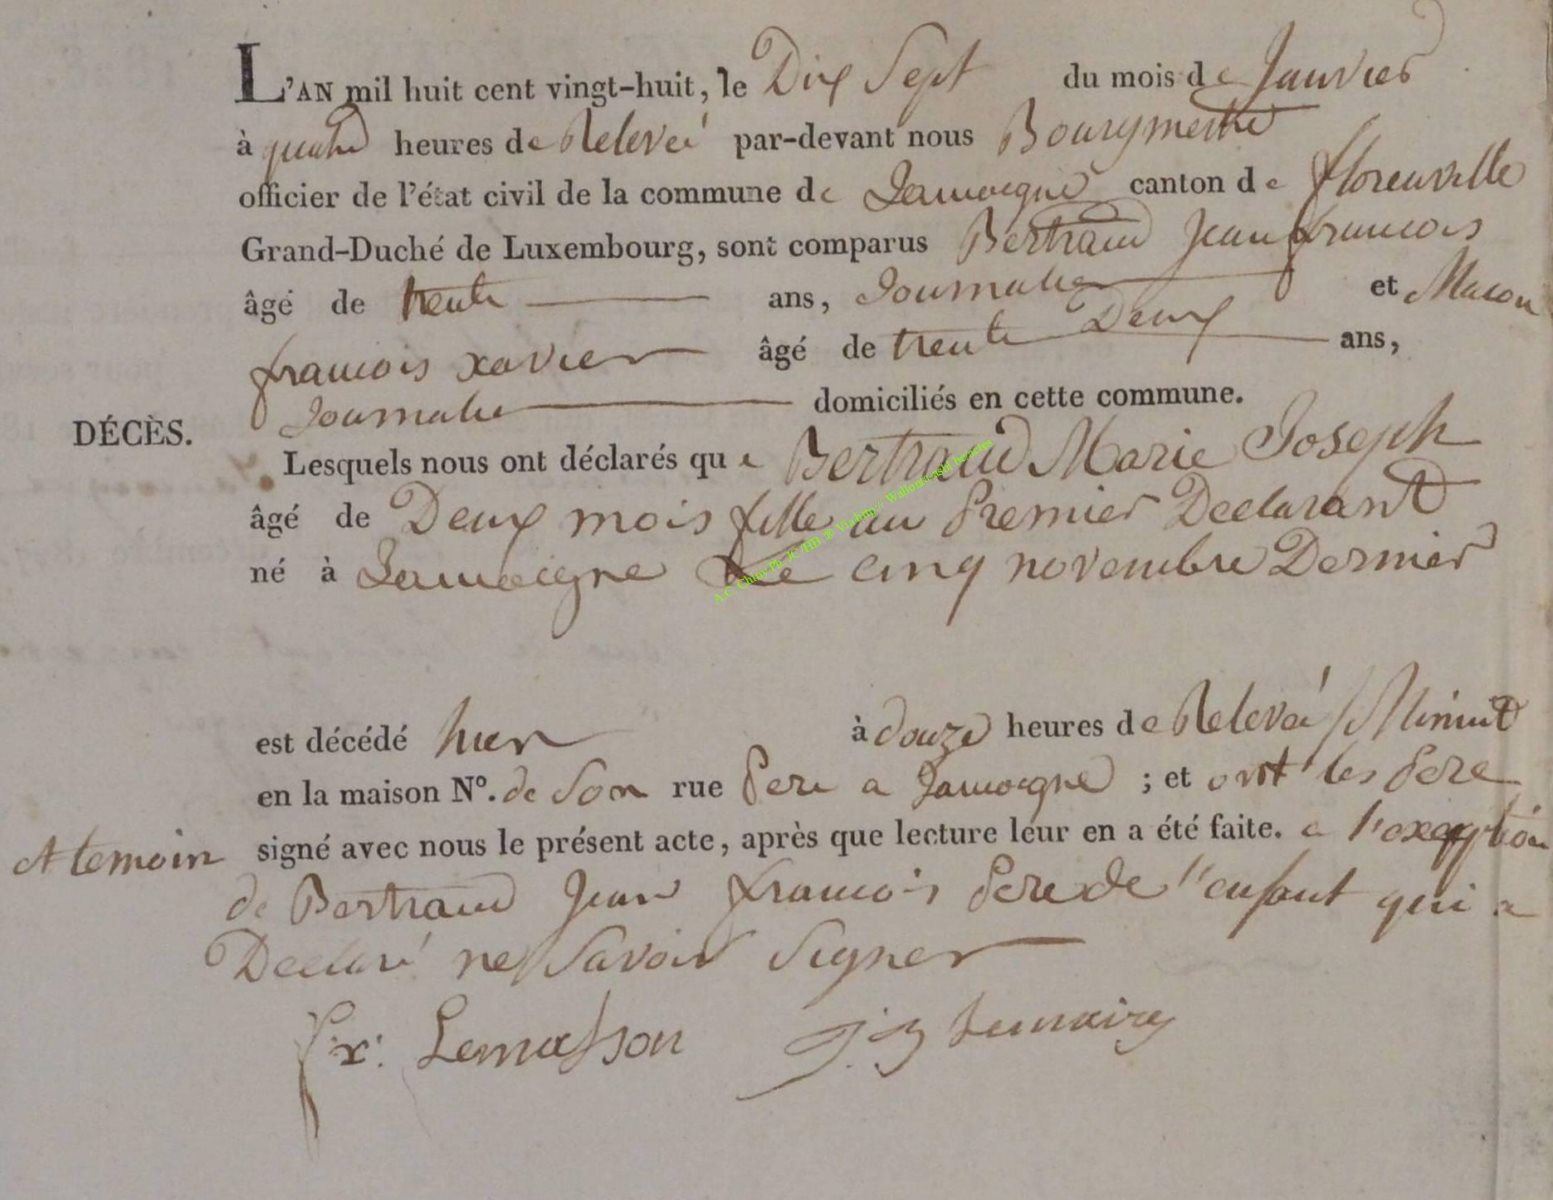 L'AN mil huit cent vingt-huit, le Dix Sept du mois de Janvier
à quatre heures de Relevée par-devant nous Bourgmestre
officier de l'état civil de la commune de Jamoigne canton de florenville
Grand-Duché de Luxembourg, sont comparus Bertrand Jean francois
âgé de trente ans, Journalier et Macon
francois xavier âgé de trente Deux ans,
Journalier domiciliés en cette commune.
DÉCÈS.
Lesquels nous ont déclarés que Bertrand Marie Joseph
âgé de Deux mois fille au Premier Declarant
né à Jamoigne Le cinq novembre Dernier
est décédé hier à douze heures de Relevée Minuit
en la maison N°. de Son rue Pere a Jamoigne ; et ont les Pere
et temoin signé avec nous le présent acte, après que lecture leur en a été faite. a l'exception
de Bertrand Jean francois Pere de l'enfant qui a
Declaré ne Savoir Signer
fr: x: Lemasson J. B Lemaire